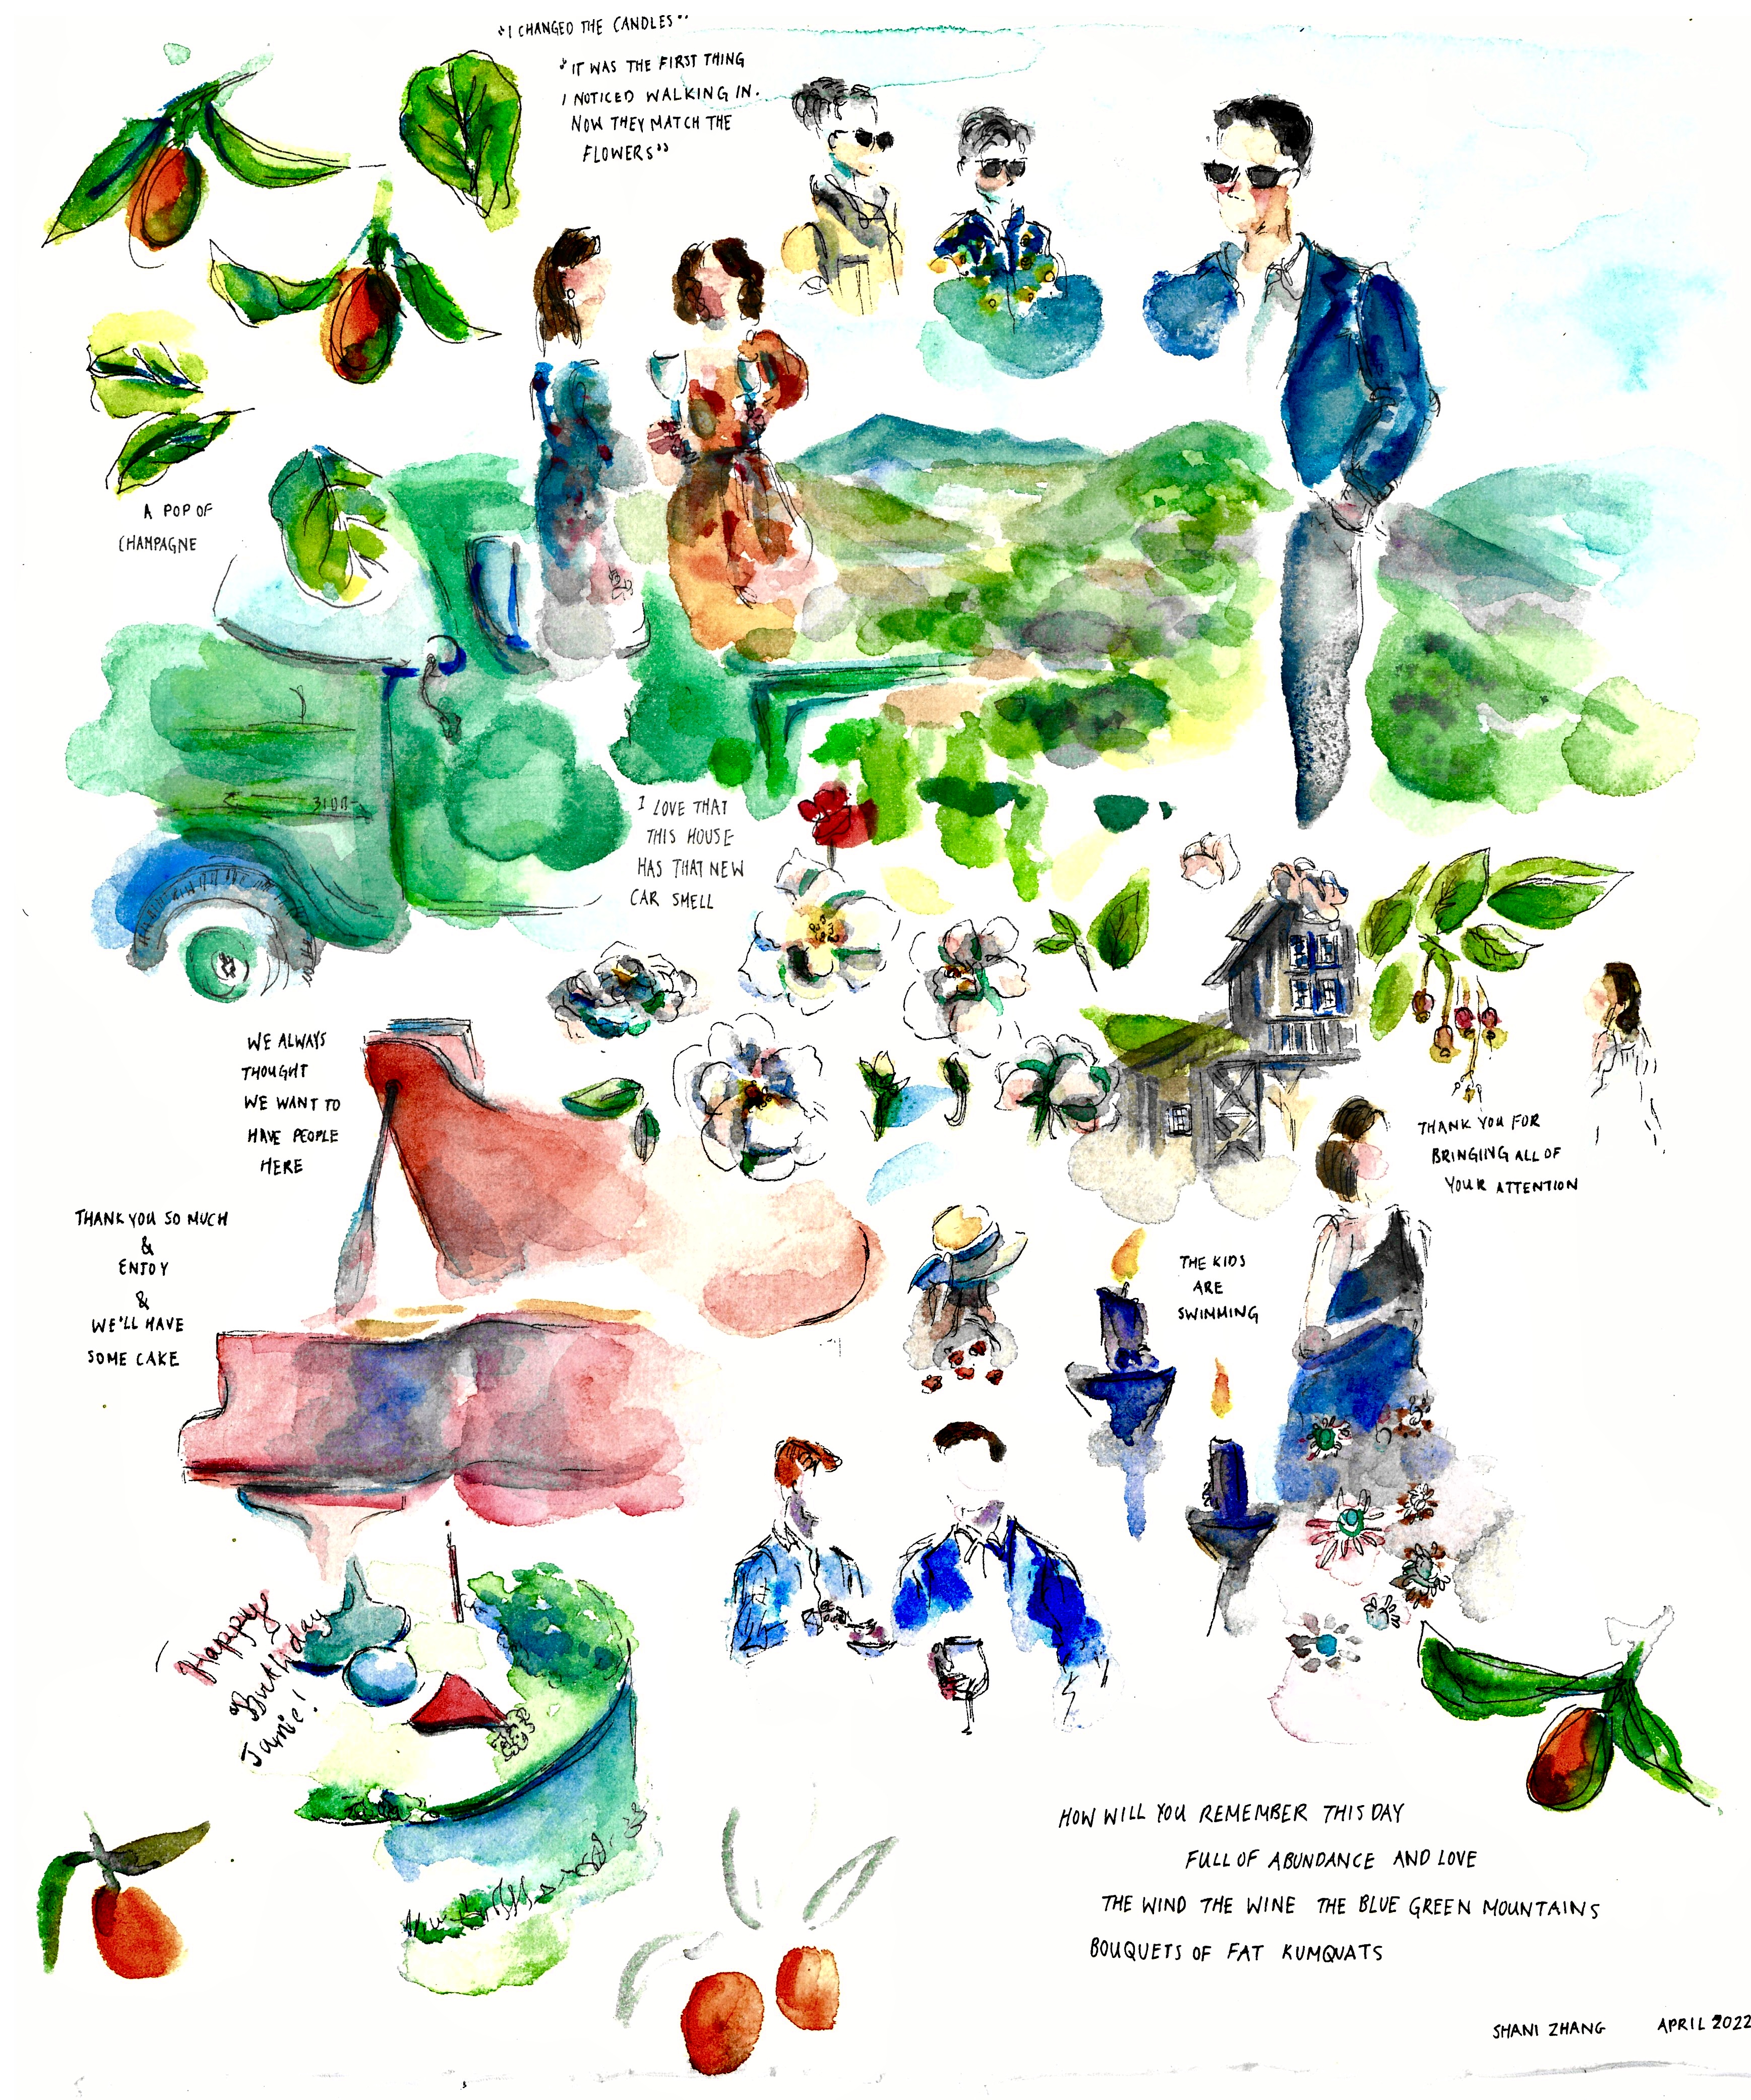 "I CHANGED THE CANDLES"
"IT WAS THE FIRST THING
I NOTICED WALKING IN.
NOW THEY MATCH THE
FLOWERS"
A POP OF
CHAMPAGNE
I LOVE THAT
THIS HOUSE
HAS THAT NEW
CAR SMELL
WE ALWAYS
THOUGHT
WE WANT TO
HAVE PEOPLE
HERE
THANK YOU FOR
BRINGING ALL OF
YOUR ATTENTION
THANK YOU SO MUCH
&
ENJOY
&
WE'LL HAVE
SOME CAKE
THE KIDS
ARE
SWIMMING
Happy
Birthday
Jamie!
HOW WILL YOU REMEMBER THIS DAY
FULL OF ABUNDANCE AND LOVE
THE WIND THE WINE THE BLUE GREEN MOUNTAINS
BOUQUETS OF FAT KUMQUATS
SHANI ZHANG APRIL 2022